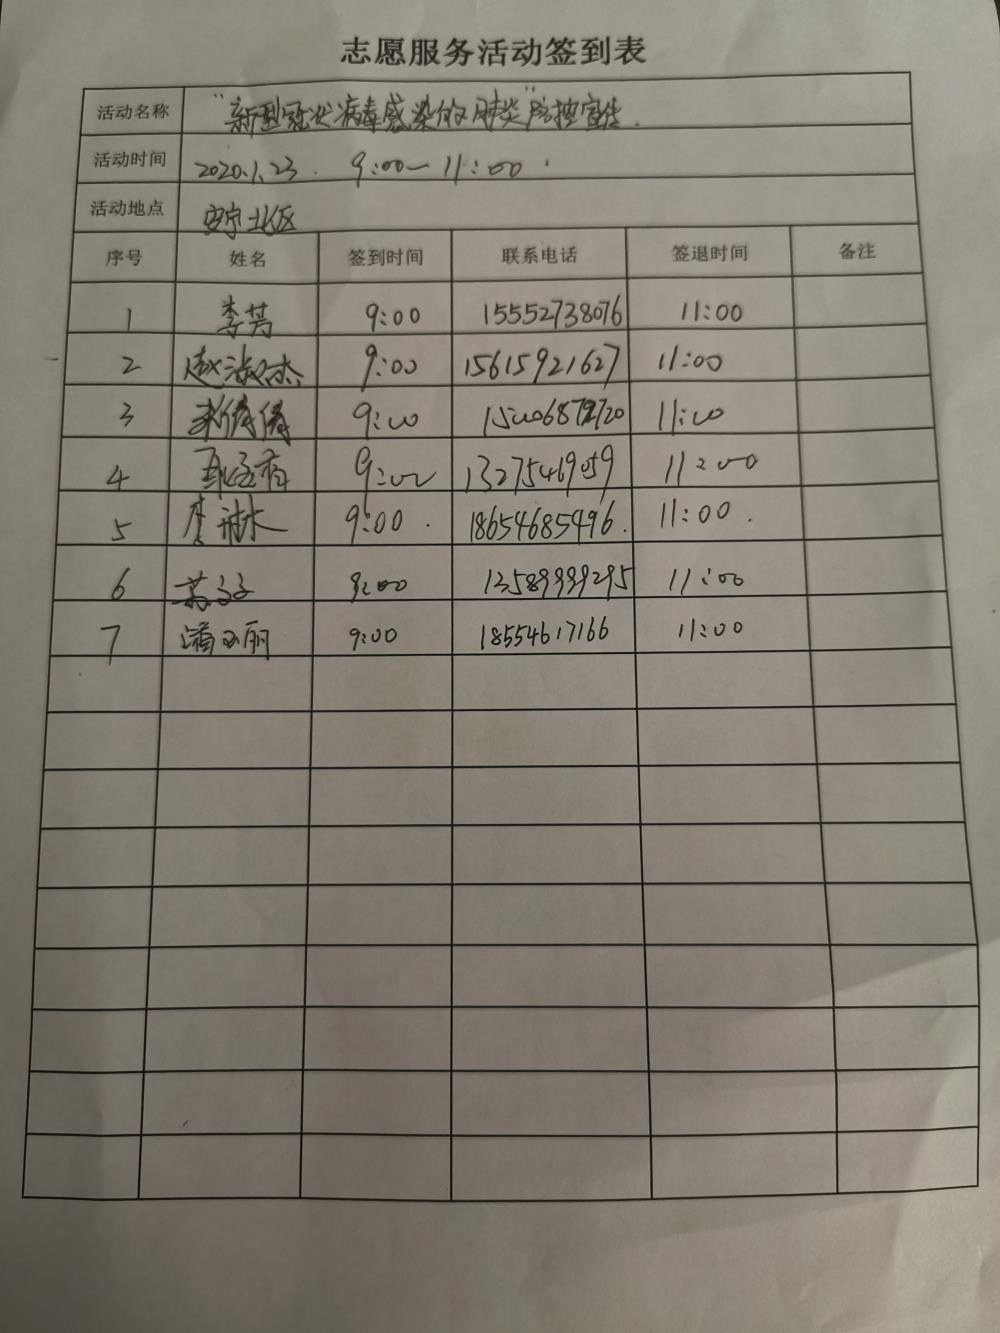 志愿服务活动签到表
活动名称 "新型冠状病毒感染的肺炎"防控宣传.
活动时间 2020.1.23. 9:00— 11:00.
活动地点 安宁北区
序号 姓名 签到时间 联系电话 签退时间 备注
1 李芳 9:00 15552738076 11:00
2 赵淑杰 9:00 15615921627 11:00
3 倩倩 9:00 11:00
4 9:00 13275469059 11:00
5 李琳 9:00. 18654685496. 11:00.
6 9:00 13589999295 11:00
7 潘丽 9:00 18554617166 11:00